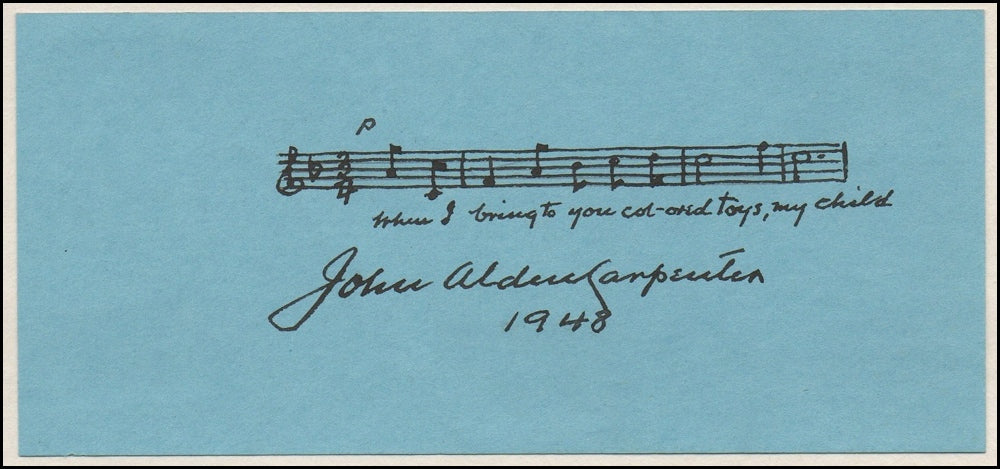 p
3
4
When I bring to you col-ored toys, my child
John Alden Carpenter
1948